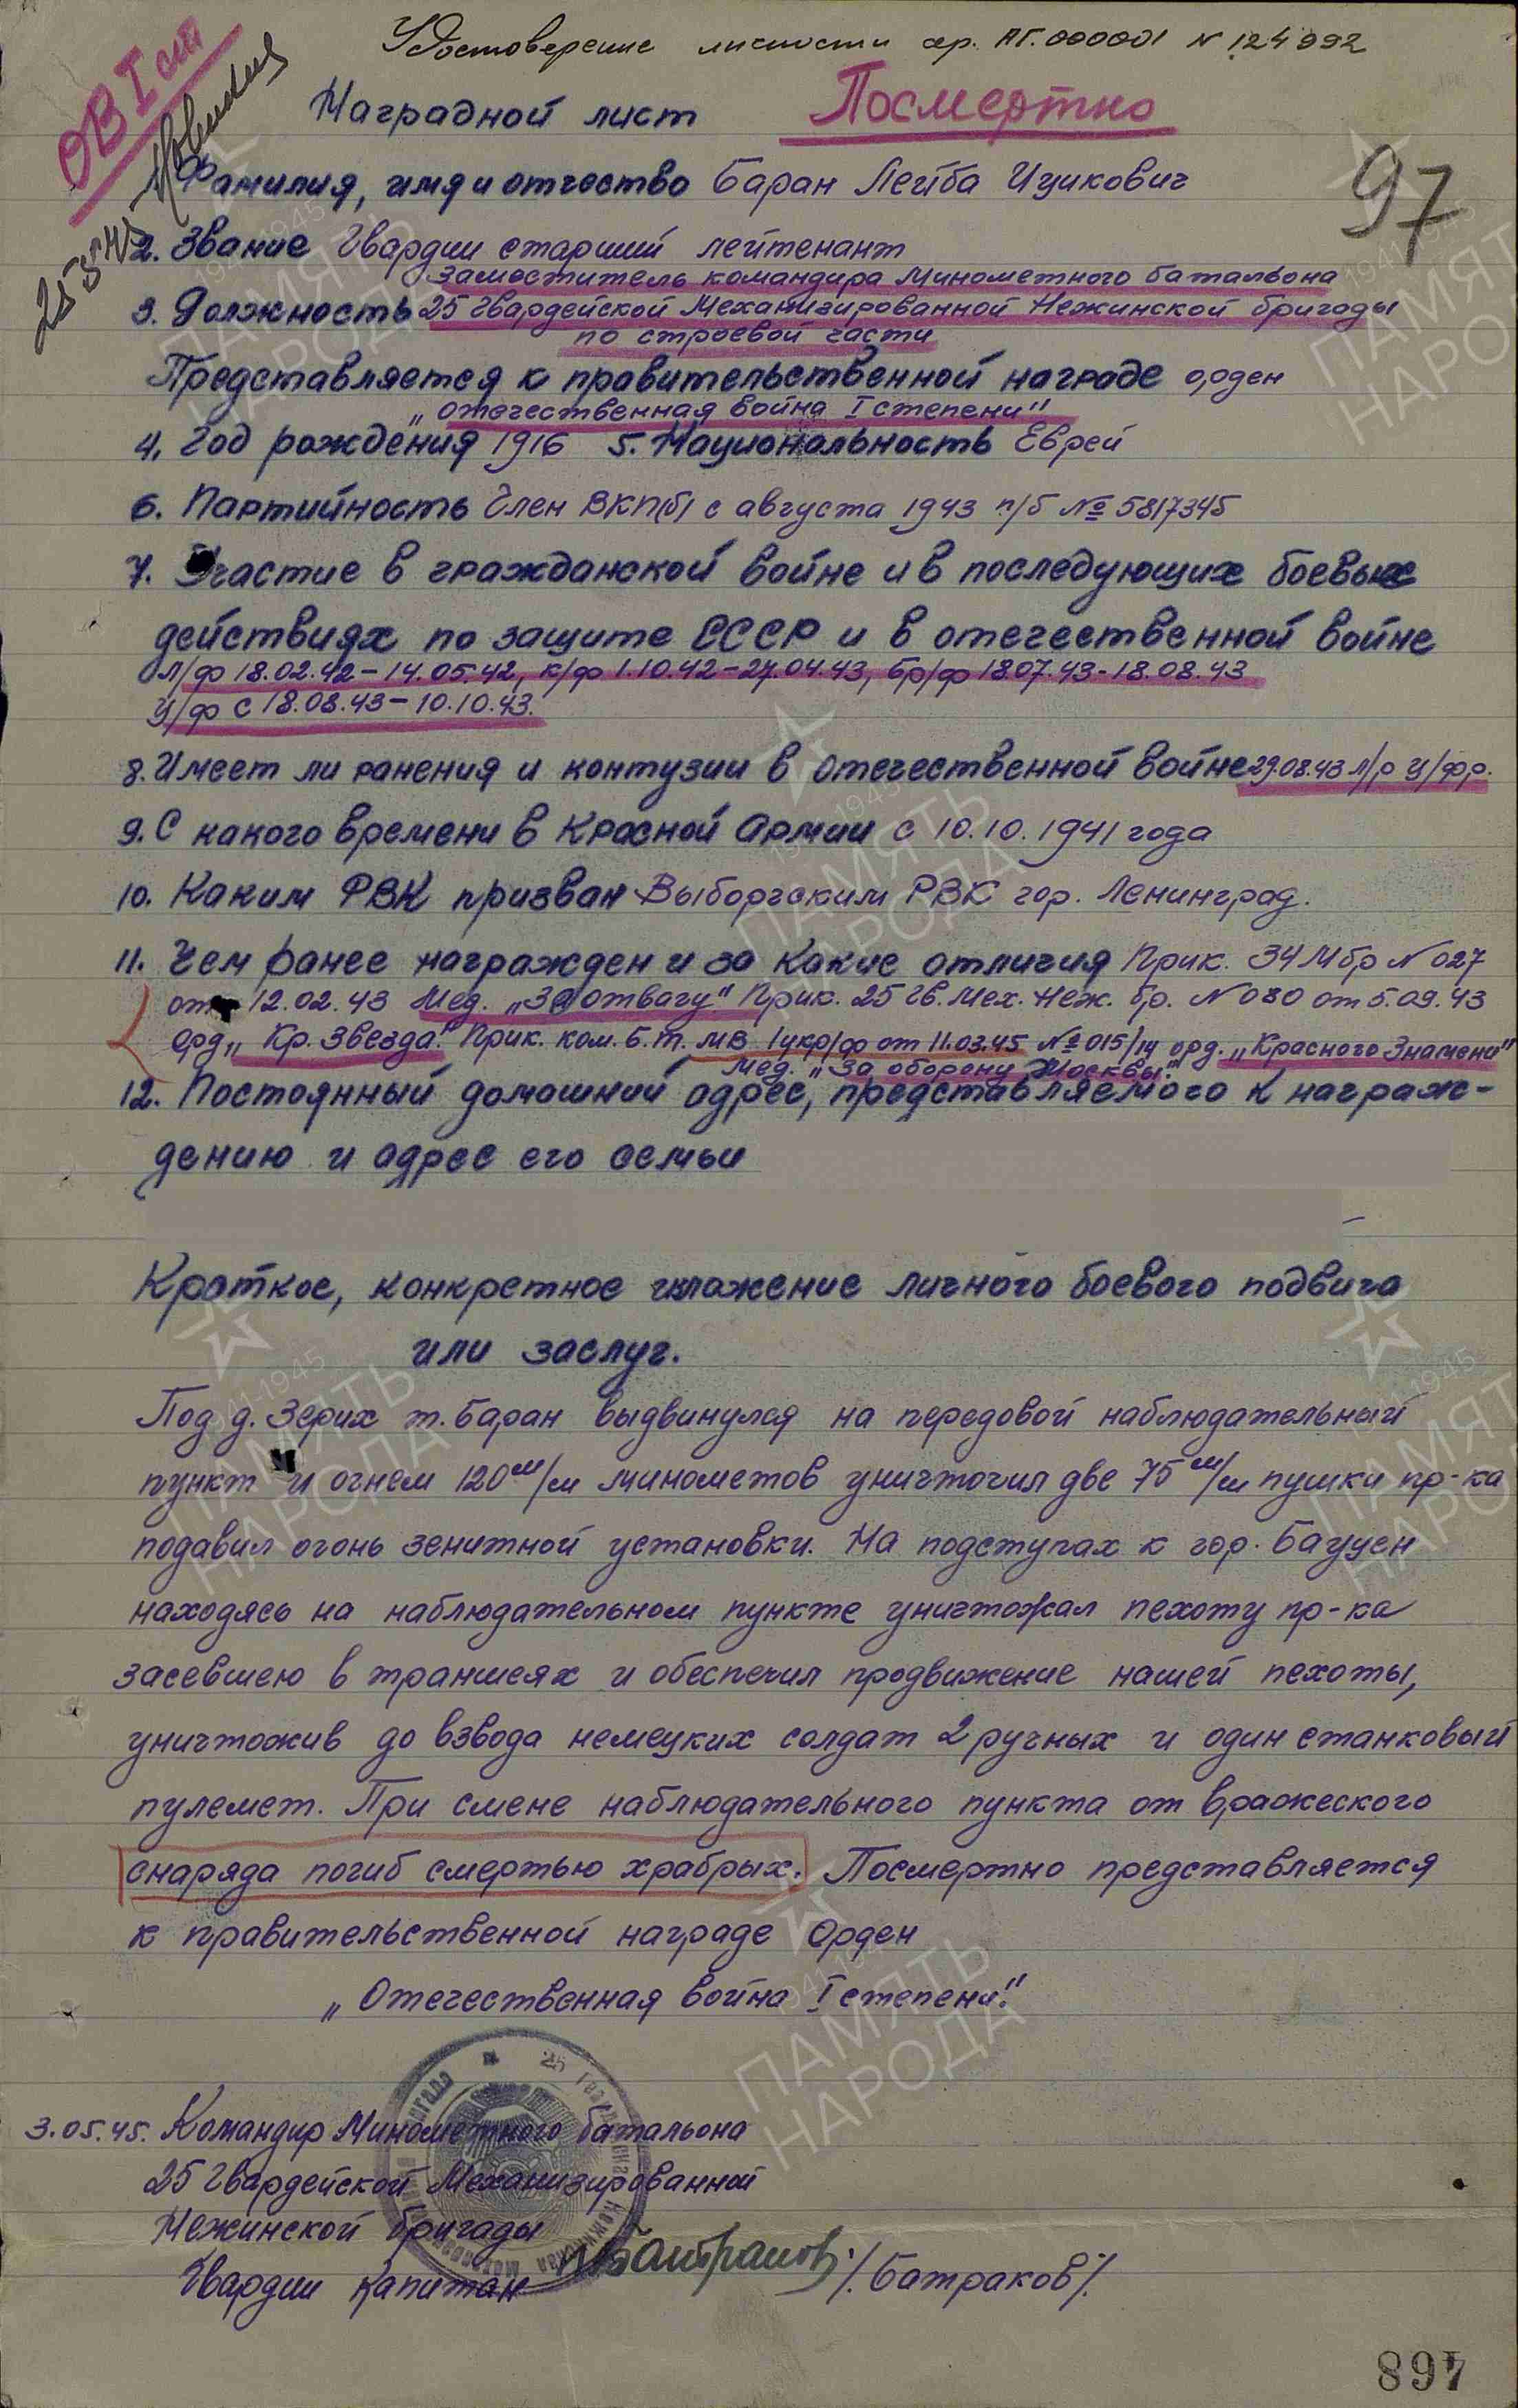 Удостоверение личности сер. АГ.000001 N 124992
ОВ I ст
Наградной лист Посмертно
97
Фамилия, имя и отчество Баран Лейба Ицикович
2. Звание Гвардии старший лейтенант
заместитель командира Минометного батальона
3. Должность 25 Гвардейской Механизированной Нежинской бригады
по строевой части
Представляется к правительственной награде орден
„отечественная война I степени"
4. Год рождения 1916 5. Национальность Еврей
6. Партийность Член ВКП(б) с августа 1943 п/б № 5817345
7. Участие в гражданской войне и в последующих боевых
действиях по защите СССР и в отечественной войне
л/ф 18.02.42-14.05.42, к/ф 1.10.42-27.04.43, бр/ф 18.07.43-18.08.43
ц/ф с 18.08.43-10.10.43.
8. Имеет ли ранения и контузии в отечественной войне 29.08.43 л/р ц/фр.
9. С какого времени в Красной Армии с 10.10.1941 года
10. Каким РВК призван Выборгским РВК гор. Ленинград.
11. Чем ранее награжден и за какие отличия Прик. 34 Мбр N 027
от 12.02.43 Мед. „За отвагу" Прик. 25 Гв. Мех. Неж. бр. N 080 от 5.09.43
Орд. „Кр. Звезда". Прик. ком. б.т. МВ 1укр/ф от 11.03.45 № 015/н орд. „Красного Знамени"
Мед. „За оборону Москвы".
12. Постоянный домашний адрес, представляемого к награж-
дению и адрес его семьи
Краткое, конкретное изложение личного боевого подвига
или заслуг.
Под д. Зерих т. Баран выдвинулся на передовой наблюдательный
пункт и огнем 120 м/м минометов уничтожил две 75 м/м пушки пр-ка
подавил огонь зенитной установки. На подступах к гор. Бауцен
находясь на наблюдательном пункте уничтожал пехоту пр-ка
засевшею в траншеях и обеспечил продвижение нашей пехоты,
уничтожив до взвода немецких солдат 2 ручных и один станковый
пулемет. При смене наблюдательного пункта от вражеского
снаряда погиб смертью храбрых. Посмертно представляется
к правительственной награде Орден
„Отечественная война I степени".
3.05.45. Командир Минометного батальона
25 Гвардейской Механизированной
Нежинской бригады
Гвардии капитан /Батраков/
ПАМЯТЬ НАРОДА
1941-1945